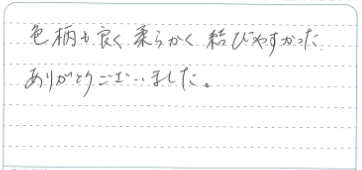 色柄も良く柔らかく結びやすかった
ありがとうございました。